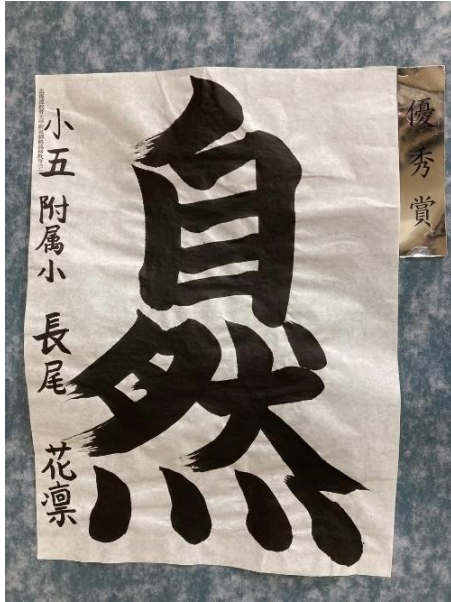 優秀賞
自然
小五 附属小 長尾 花凛